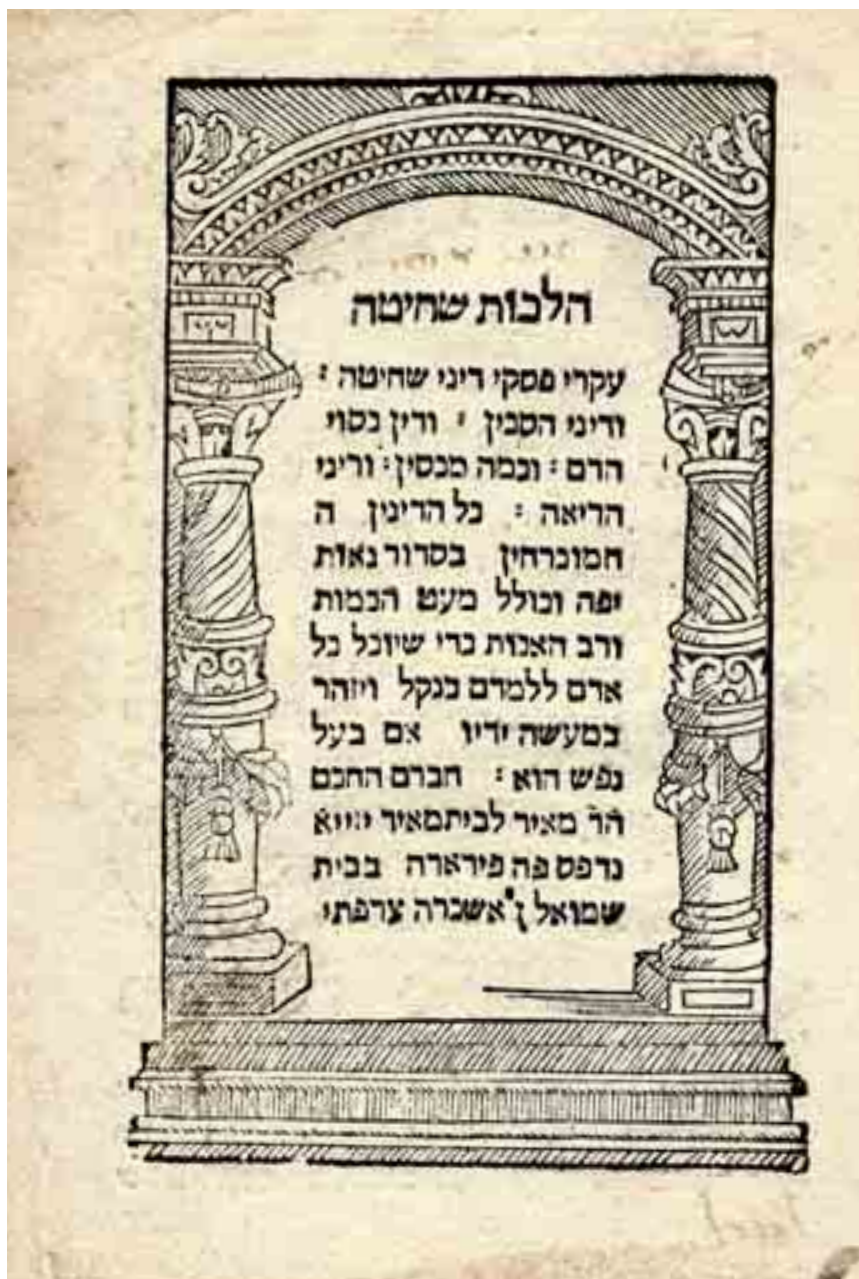 הלכות שחיטה
עקרי פסקי דיני שחיטה :
ודיני הסכין : ודין כסוי
הדם : וכמה מכסין : ודיני
הריאה : כל הדינין ה
המוכרחין בסדור נאות
יפה וכולל מעט הכמות
ורב האכות כדי שיוכל כל
אדם ללמדם בנקל ויזהר
במעשה ידיו אם בעל
נפש הוא : חברם החכם
הר מאיר לבית מאיר
נדפס פה פירארה בבית
שמואל ן' אשכרה צרפתי